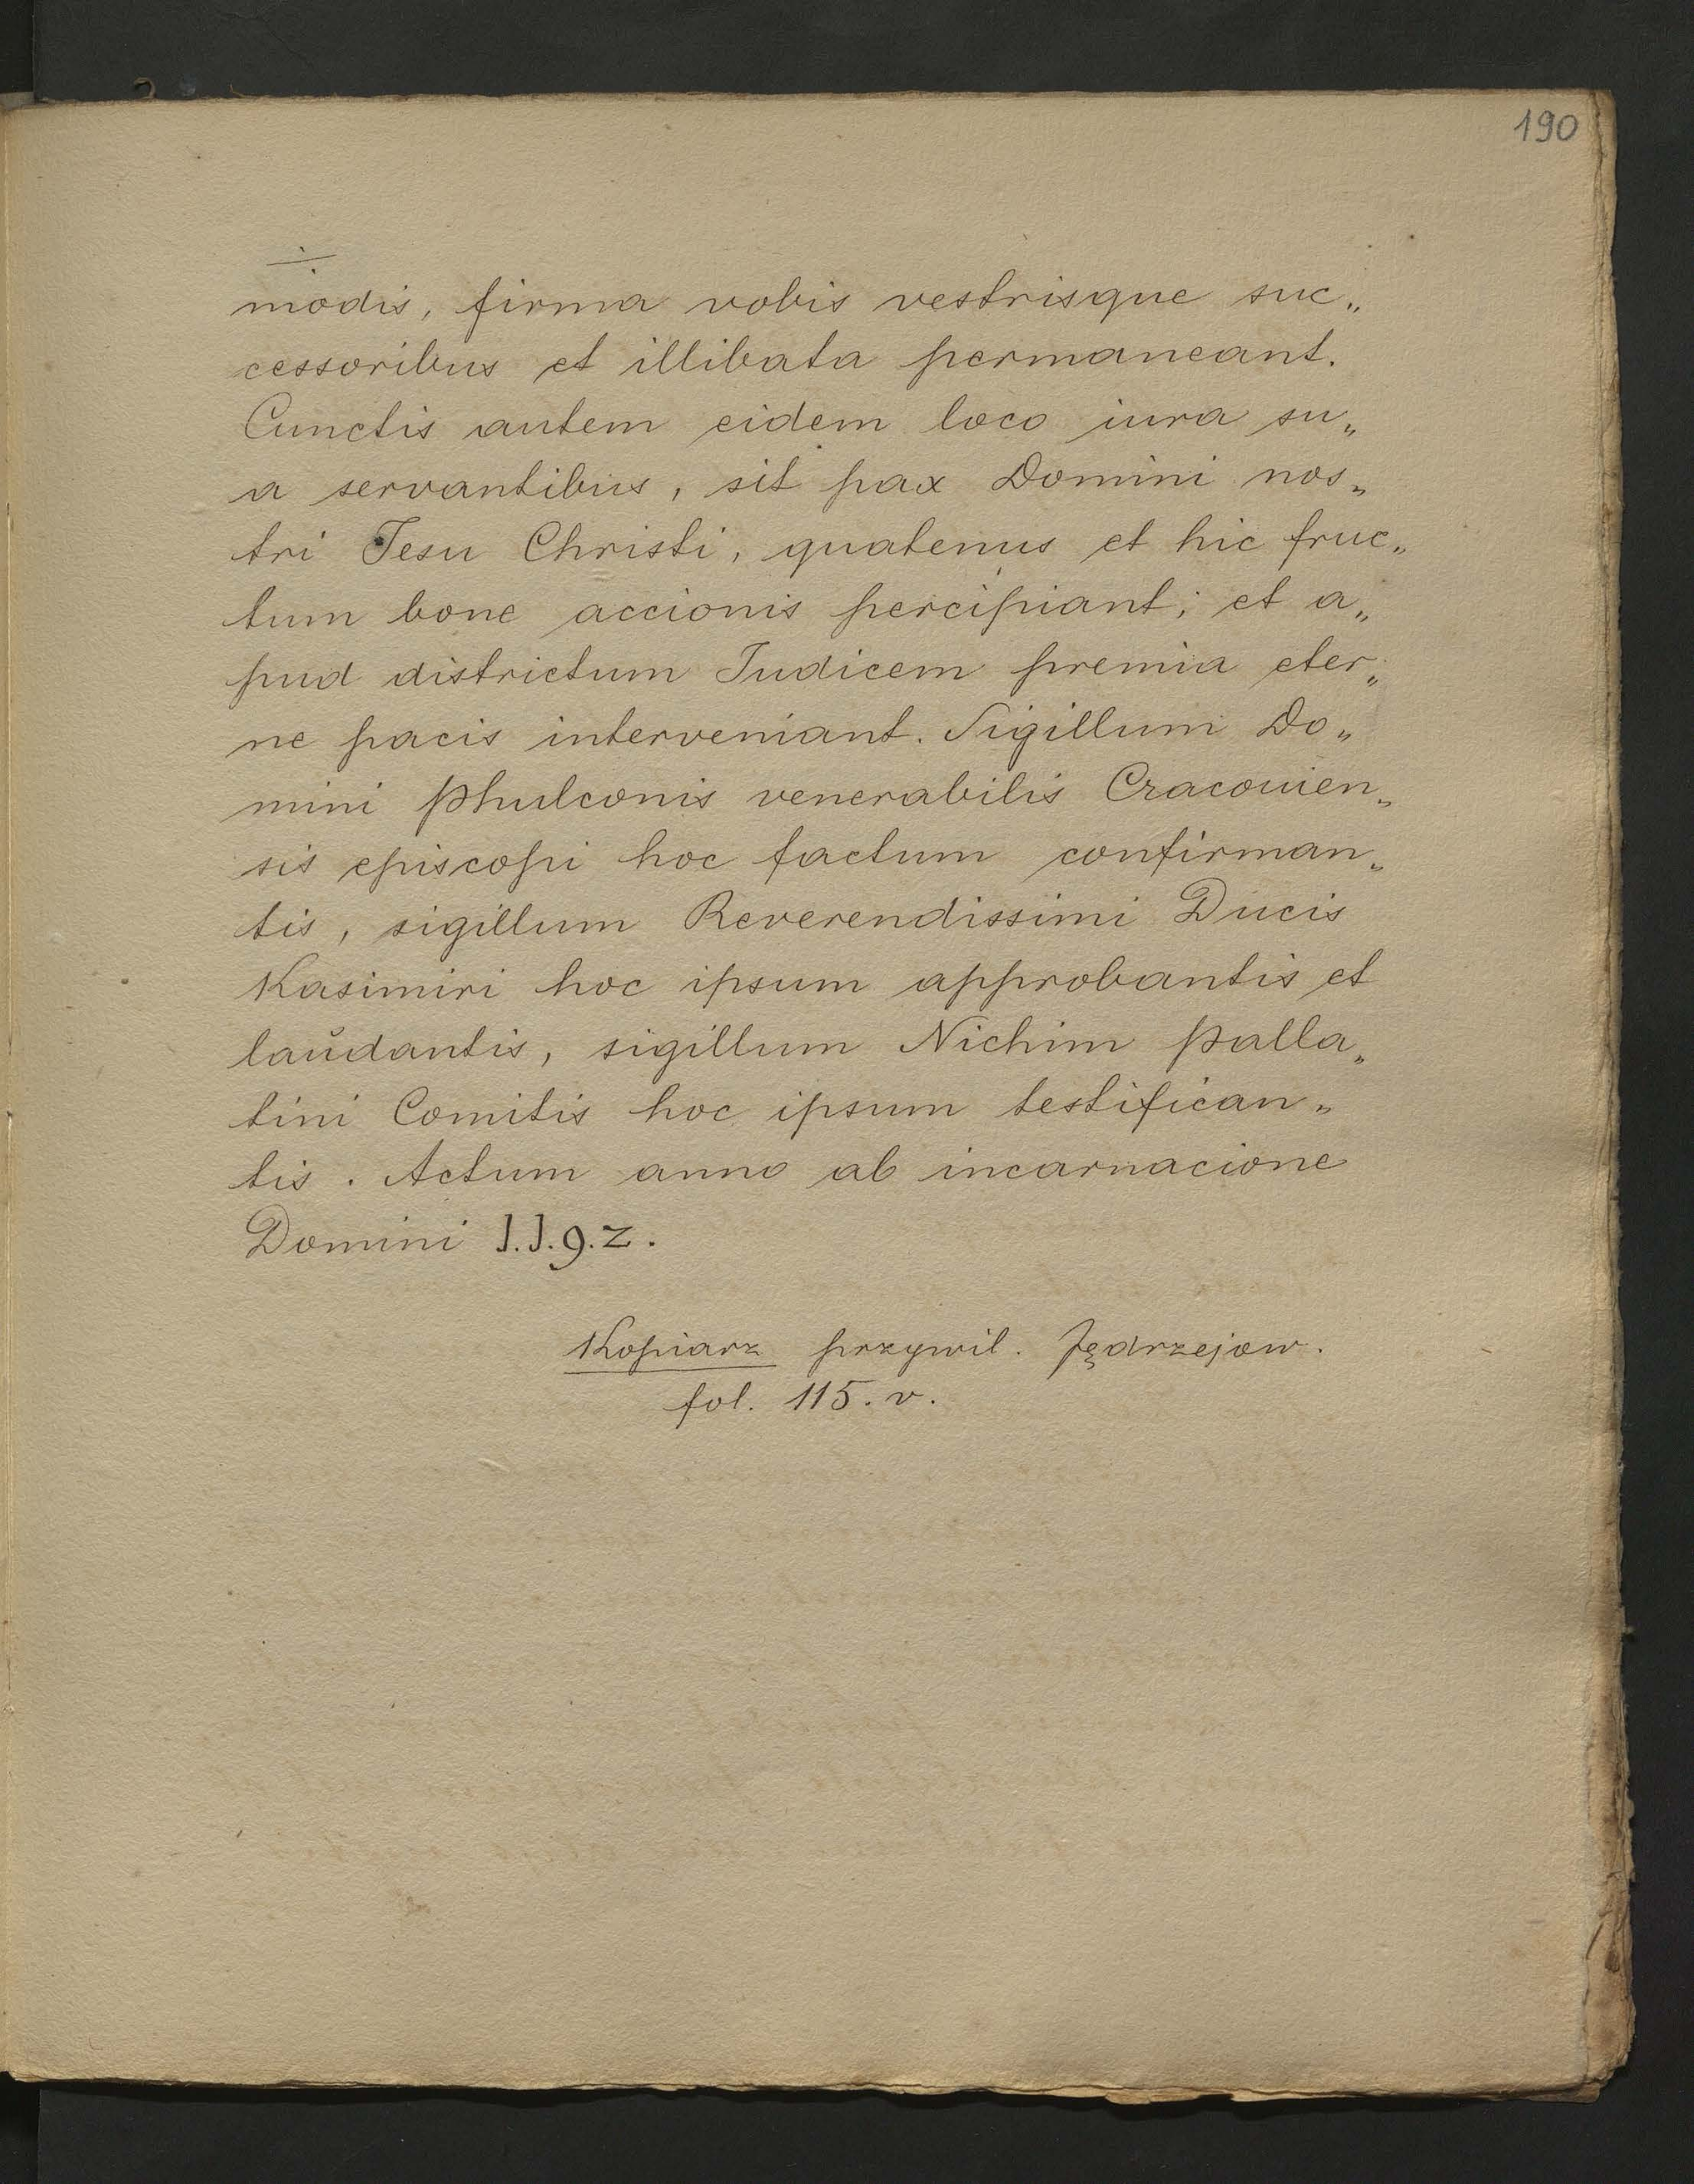 190
modis, firma vobis vestrisque suc„
cessoribus et illibata permaneant.
Cunctis autem eidem loco iura su„
a servantibus, sit pax Domini nos„
tri Jesu Christi, quatenus et hic fruc„
tum bone accionis percipiant; et a„
pud districtum Judicem premia eter„
ne pacis interveniant. Sigillum Do„
mini Phulconis venerabilis Cracouien„
sis episcopi hoc factum confirman„
tis, sigillum Reverendissimi Ducis
Kasimiri hoc ipsum approbantis et
laŭdantis, sigillum Nichim Palla„
tini Comitis hoc ipsum testifican„
tis. Actum anno ab incarnacione
Domini 1.1.9.2.
Kopiarz przywil. Jędrzejow.
fol. 115. v.